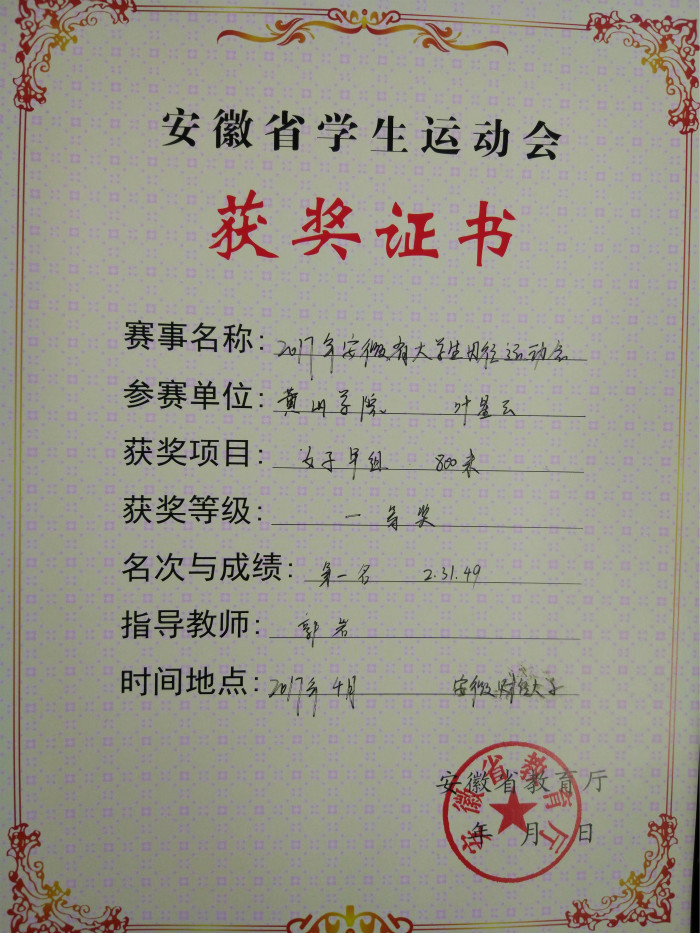 安徽省学生运动会
获奖证书
赛事名称: 2017年安徽省大学生田径运动会
参赛单位: 黄山学院 叶星云
获奖项目: 女子甲组 800米
获奖等级: 一等奖
名次与成绩: 第一名 2.31.49
指导教师: 郭岩
时间地点: 2017年4月 安徽财经大学
安徽省教育厅
年 月 日
安徽省教育厅